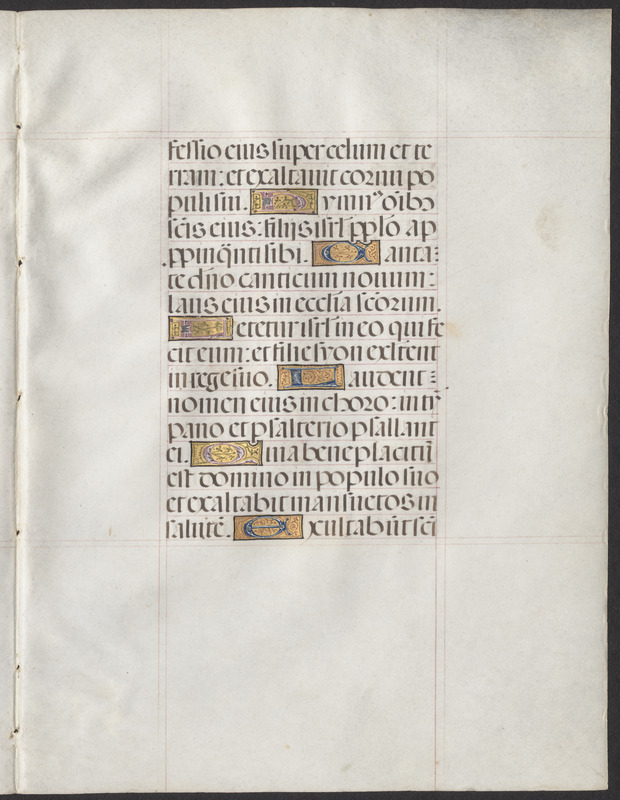 fessio eius super celum et te
rram: et exaltauit cornu po
puli sui. H ymnꝰ oĩbꝯ
scĩs eius: filijs isrł pplõ ap
ppinq̃nti sibi. C anta:
te dño canticum nouum:
laus eius in ecclia scõrum.
L etetur isrł in eo qui fe
cit eum: et filie syon exltent
in rege suo. L audent:
nomen eius in choro: in tĩ
pano et psalterio psallant
ei. Q uia beneplacitũ
est domino in populo suo
et exaltabit mansuetos in
salutẽ. E xultabũt scĩ